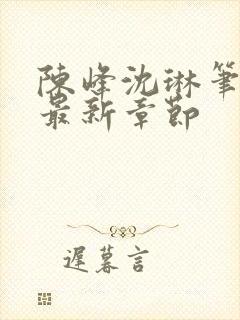 陳峰沈琳筆
最新章節
遲暮言